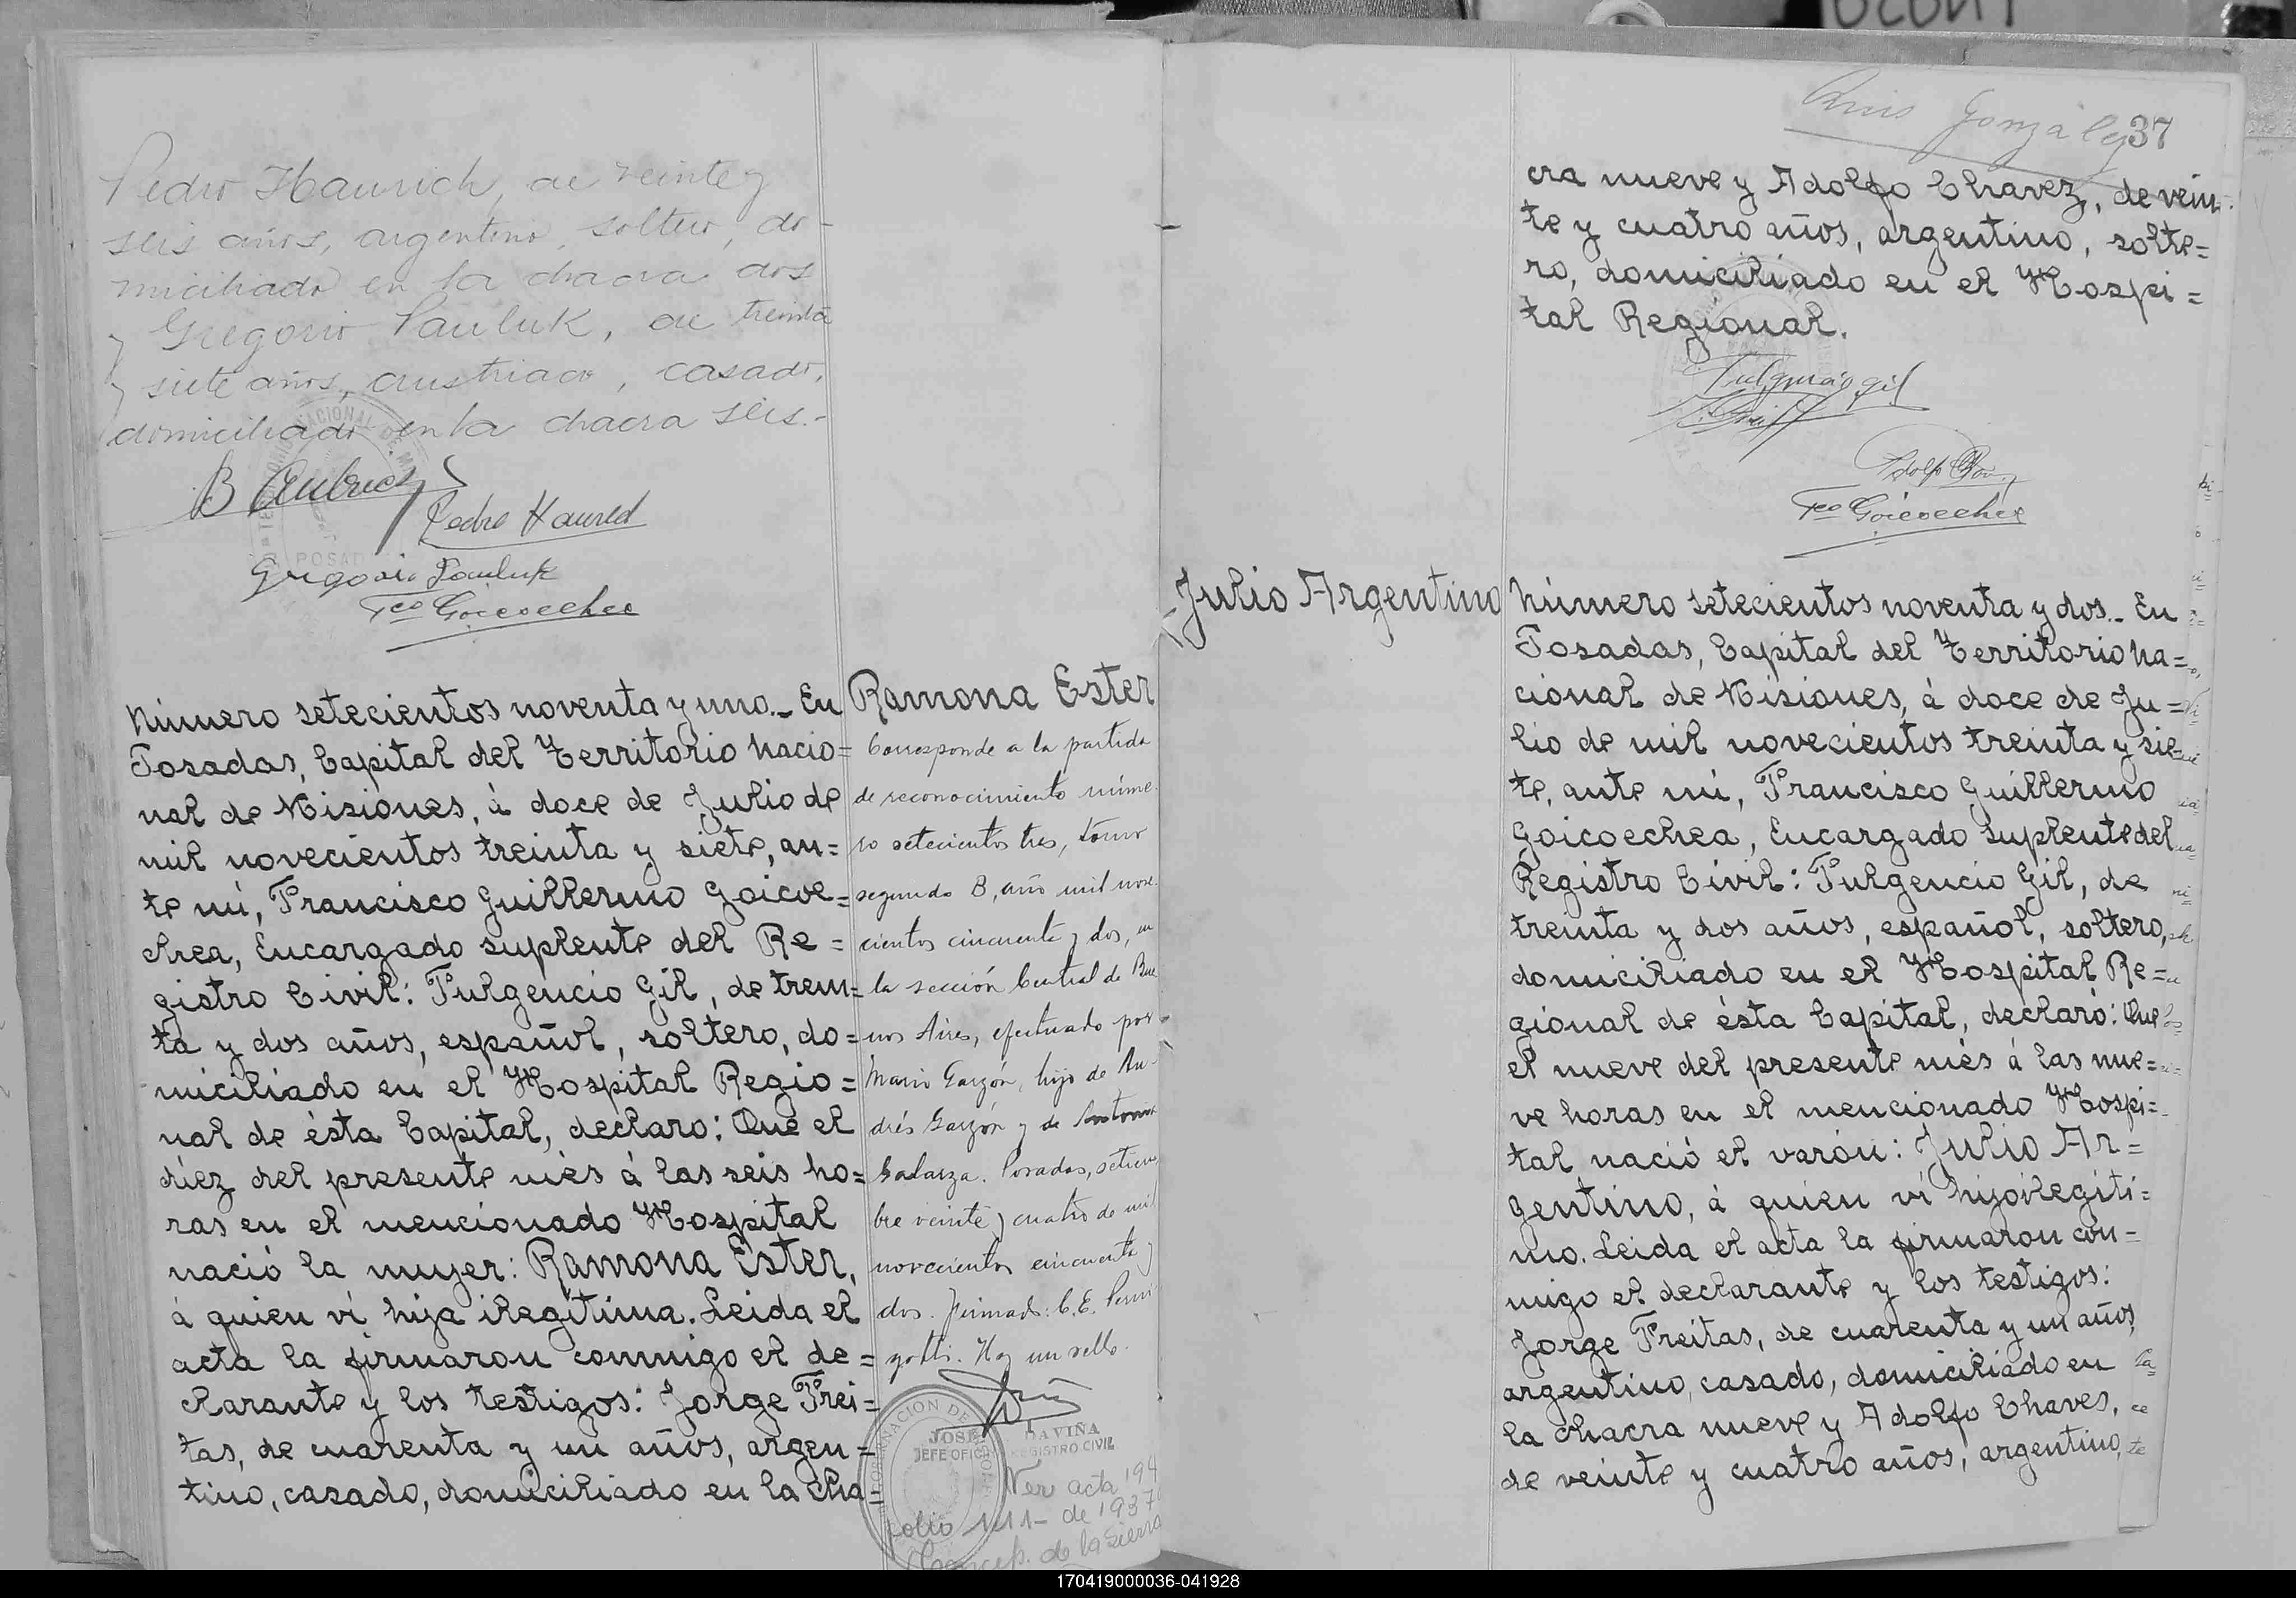 Pedro Haurich, de veinte y
seis años, argentino, soltero, do-
miciliado en la chacra dos
y Gregorio Pauluk, de treinta
y siete años, austriaco, casado,
domiciliado en la chacra seis.-
Pedro Haurich
Gregorio Pauluk
Fco Goicoechea
Número setecientos noventa y uno.- En
Posadas, Capital del Territorio Nacio=
nal de Misiones, á doce de Julio de
mil novecientos treinta y siete, an=
te mí, Francisco Guillermo Goicoe=
chea, Encargado suplente del Re=
gistro Civil: Fulgencio Gil, de trein=
ta y dos años, español, soltero, do=
miciliado en el Hospital Regio=
nal de ésta Capital, declaró: Que el
díez del presente més á las seis ho=
ras en el mencionado Hospital
nació la mujer: Ramona Ester,
á quien ví hija ilegítima. Leida el
acta la firmaron conmigo el de=
clarante y los testigos: Jorge Frei=
tas, de cuarenta y un años, argen=
tino, casado, domiciliado en la cha=
Ramona Ester
Corresponde a la partida
de reconocimiento núme-
ro setecientos tres, tomo
segundo B, año mil nove-
cientos cincuenta y dos, en
la sección Central de Bue
nos Aires, efectuado por
Mario Garzón, hijo de An-
drés Garzón y de Antonina
Galarza. Posadas, setiem
bre veinte y cuatro de mil
novecientos cincuenta y
dos. Firmado: C.E.
Hay un sello.
GOBERNACION DE
JOSE DAVIÑA
JEFE OFIC REGISTRO CIVIL
Ver acta 194
folio 111- de 1937
Concep. de la Sierra
Luis González
37
cra nueve y Adolfo Chavez, de vein-
te y cuatro años, argentino, solte=
ro, domiciliado en el Hospi=
tal Regional.
Fulgencio Gil
Fco Goicoechea
Julio Argentino
Número setecientos noventa y dos.- En
Posadas, Capital del Territorio Na=
cional de Misiones, á doce de Ju=
lio de mil novecientos treinta y sie=
te, ante mí, Francisco Guillermo
Goicoechea, Encargado suplente del
Registro Civil: Fulgencio Gil, de
treinta y dos años, español, soltero,
domiciliado en el Hospital Re=
gional de ésta Capital, declaró: Que
el nueve del presente més á las nue=
ve horas en el mencionado Hospi=
tal nació el varón: Julio Ar=
gentino, á quien ví hijo ilegíti=
mo. Leida el acta la firmaron con=
migo el declarante y los testigos:
Jorge Freitas, de cuarenta y un años,
argentino, casado, domiciliado en
la chacra nueve y Adolfo Chaves,
de veinte y cuatro años, argentino,
170419000036-041928